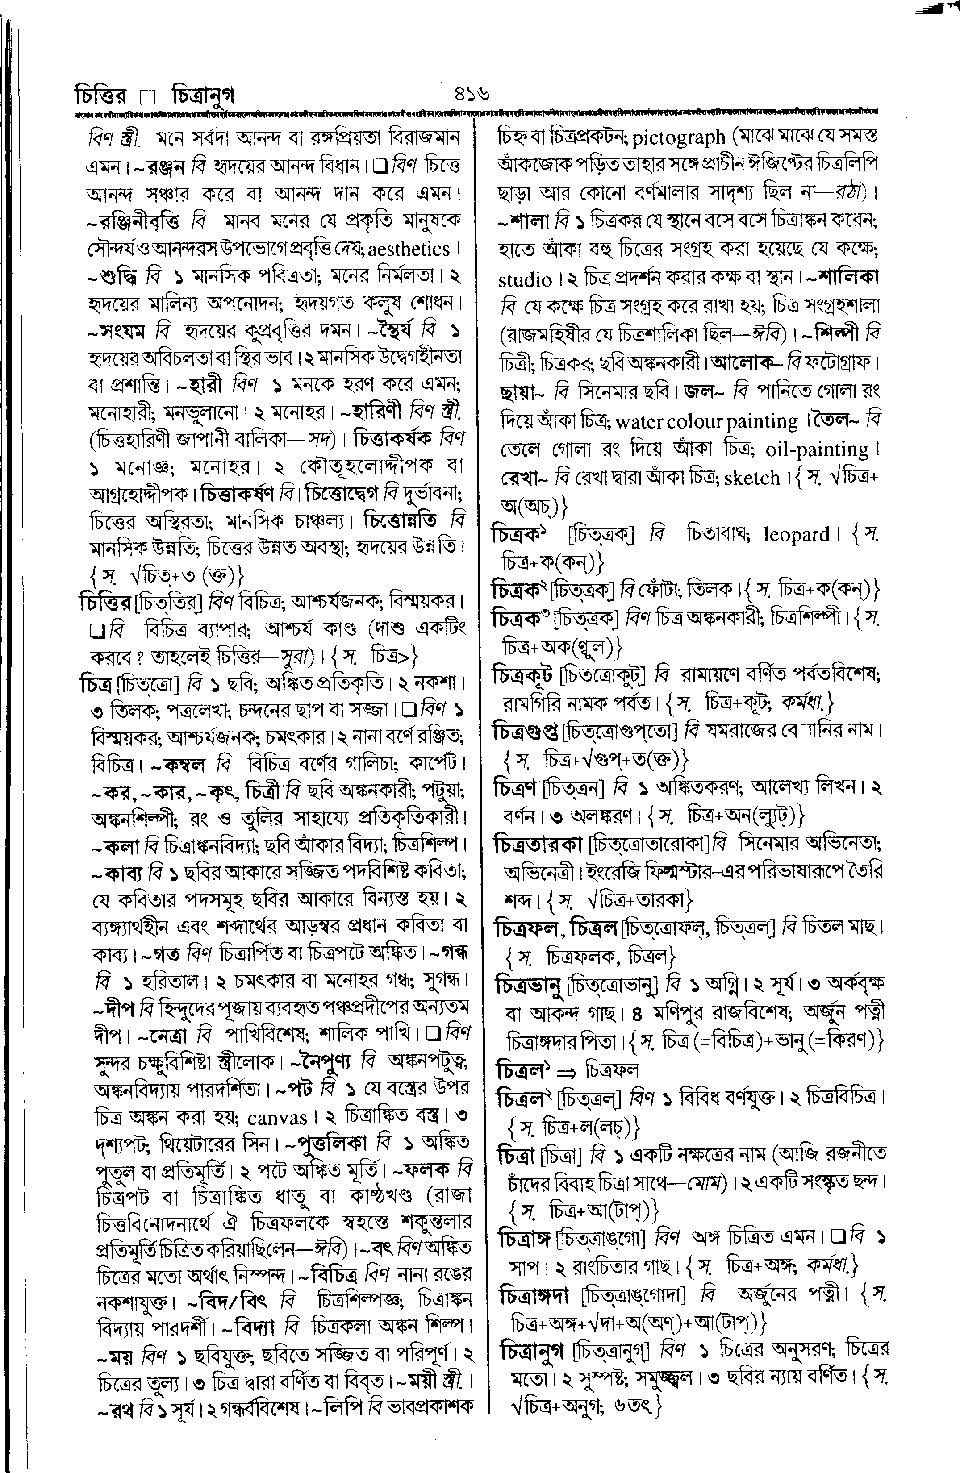 চিত্তির □ চিত্রানুগ
৪১৬
বিণ স্ত্রী. মনে সর্বদা আনন্দ বা রঙ্গপ্রিয়তা বিরাজমান
এমন। ~রঞ্জন বি হৃদয়ের আনন্দ বিধান। □ বিণ চিত্তে
আনন্দ সঞ্চার করে বা আনন্দ দান করে এমন।
~রঞ্জিনীবৃত্তি বি মানব মনের যে প্রকৃতি মানুষকে
সৌন্দর্য ও আনন্দরস উপভোগে প্রবৃত্তি দেয়; aesthetics।
~শুদ্ধি বি ১ মানসিক পবিত্রতা; মনের নির্মলতা। ২
হৃদয়ের মালিন্য অপনোদন; হৃদয়গত কলুষ শোধন।
~সংযম বি হৃদয়ের কুপ্রবৃত্তির দমন। ~স্থৈর্য বি ১
হৃদয়ের অবিচলতা বা স্থির ভাব। ২ মানসিক উদ্বেগহীনতা
বা প্রশান্তি। ~হারী বিণ ১ মনকে হরণ করে এমন;
মনোহারী; মনভুলানো। ২ মনোহর। ~হারিণী বিণ স্ত্রী.
(চিত্তহারিণী জাপানী বালিকা—সদ)। চিত্তাকর্ষক বিণ
১ মনোজ্ঞ; মনোহর। ২ কৌতূহলোদ্দীপক বা
আগ্রহোদ্দীপক। চিত্তাকর্ষণ বি। চিত্তোদ্বেগ বি দুর্ভাবনা;
চিত্তের অস্থিরতা; মানসিক চাঞ্চল্য। চিত্তোন্নতি বি
মানসিক উন্নতি; চিত্তের উন্নত অবস্থা; হৃদয়ের উন্নতি।
{স. √চিত্+ত (ক্ত)}
চিত্তির [চিত্‌তির্] বিণ বিচিত্র; আশ্চর্যজনক; বিস্ময়কর।
□ বি বিচিত্র ব্যাপার; আশ্চর্য কাণ্ড (দাশু একটিং
করবে? তাহলেই চিত্তির—সুরা)। {স. চিত্র>}
চিত্র [চিত্‌ত্রো] বি ১ ছবি; অঙ্কিত প্রতিকৃতি। ২ নকশা।
৩ তিলক; পত্রলেখা; চন্দনের ছাপ বা সজ্জা। □ বিণ ১
বিস্ময়কর; আশ্চর্যজনক; চমৎকার। ২ নানা বর্ণে রঞ্জিত;
বিচিত্র। ~কম্বল বি বিচিত্র বর্ণের গালিচা; কার্পেট।
~কর, ~কার, ~কৃৎ, চিত্রী বি ছবি অঙ্কনকারী; পটুয়া;
অঙ্কনশিল্পী; রং ও তুলির সাহায্যে প্রতিকৃতিকারী।
~কলা বি চিত্রাঙ্কনবিদ্যা; ছবি আঁকার বিদ্যা; চিত্রশিল্প।
~কাব্য বি ১ ছবির আকারে সজ্জিত পদবিশিষ্ট কবিতা;
যে কবিতার পদসমূহ ছবির আকারে বিন্যস্ত হয়। ২
ব্যঙ্গ্যার্থহীন এবং শব্দার্থের আড়ম্বর প্রধান কবিতা বা
কাব্য। ~গত বিণ চিত্রার্পিত বা চিত্রপটে অঙ্কিত। ~গন্ধ
বি ১ হরিতাল। ২ চমৎকার বা মনোহর গন্ধ; সুগন্ধ।
~দীপ বি হিন্দুদের পূজায় ব্যবহৃত পঞ্চপ্রদীপের অন্যতম
দীপ। ~নেত্রা বি পাখিবিশেষ; শালিক পাখি। □ বিণ
সুন্দর চক্ষুবিশিষ্টা স্ত্রীলোক। ~নৈপুণ্য বি অঙ্কনপটুত্ব;
অঙ্কনবিদ্যায় পারদর্শিতা। ~পট বি ১ যে বস্ত্রের উপর
চিত্র অঙ্কন করা হয়; canvas। ২ চিত্রাঙ্কিত বস্ত্র। ৩
দৃশ্যপট; থিয়েটারের সিন। ~পুত্তলিকা বি ১ অঙ্কিত
পুতুল বা প্রতিমূর্তি। ২ পটে অঙ্কিত মূর্তি। ~ফলক বি
চিত্রপট বা চিত্রাঙ্কিত ধাতু বা কাষ্ঠখণ্ড (রাজা
চিত্তবিনোদনার্থে ঐ চিত্রফলকে স্বহস্তে শকুন্তলার
প্রতিমূর্তি চিত্রিত করিয়াছিলেন—ঈবি)। ~বৎ বিণ অঙ্কিত
চিত্রের মতো অর্থাৎ নিস্পন্দ। ~বিচিত্র বিণ নানা রঙের
নকশাযুক্ত। ~বিদ/বিৎ বি চিত্রশিল্পজ্ঞ; চিত্রাঙ্কন
বিদ্যায় পারদর্শী। ~বিদ্যা বি চিত্রকলা অঙ্কন শিল্প।
~ময় বিণ ১ ছবিযুক্ত; ছবিতে সজ্জিত বা পরিপূর্ণ। ২
চিত্রের তুল্য। ৩ চিত্র দ্বারা বর্ণিত বা বিবৃত। ~ময়ী স্ত্রী.।
~রথ বি ১ সূর্য। ২ গন্ধর্ববিশেষ। ~লিপি বি ভাবপ্রকাশক
চিহ্ন বা চিত্রপ্রকটন; pictograph (মাঝে মাঝে যে সমস্ত
আঁকজোক পড়িত তাহার সঙ্গে প্রাচীন ঈজিপ্টের চিত্রলিপি
ছাড়া আর কোনো বর্ণমালার সাদৃশ্য ছিল না—রঠা)।
~শালা বি ১ চিত্রকর যে স্থানে বসে বসে চিত্রাঙ্কন করেন;
হাতে আঁকা বহু চিত্রের সংগ্রহ করা হয়েছে যে কক্ষে;
studio। ২ চিত্র প্রদর্শন করার কক্ষ বা স্থান। ~শালিকা
বি যে কক্ষে চিত্র সংগ্রহ করে রাখা হয়; চিত্র সংগ্রহশালা
(রাজমহিষীর যে চিত্রশালিকা ছিল—ঈবি)। ~শিল্পী বি
চিত্রী; চিত্রকর; ছবি অঙ্কনকারী। আলোক~ বি ফটোগ্রাফ।
ছায়া~ বি সিনেমার ছবি। জল~ বি পানিতে গোলা রং
দিয়ে আঁকা চিত্র; water colour painting। তৈল~ বি
তেলে গোলা রং দিয়ে আঁকা চিত্র; oil-painting।
রেখা~ বি রেখা দ্বারা আঁকা চিত্র; sketch। {স. √চিত্র+
অ(অচ্)}
চিত্রক১ [চিত্‌ত্রক্] বি চিতাবাঘ; leopard। {স.
চিত্র+ক(কন্)}
চিত্রক২ [চিত্‌ত্রক্] বি ফোঁটা; তিলক। {স. চিত্র+ক(কন্)}
চিত্রক৩ [চিত্‌ত্রক্] বিণ চিত্র অঙ্কনকারী; চিত্রশিল্পী। {স.
চিত্র+অক(ণ্বুল্)}
চিত্রকূট [চিত্‌ত্রোকুট্] বি রামায়ণে বর্ণিত পর্বতবিশেষ;
রামগিরি নামক পর্বত। {স. চিত্র+কূট; কর্মধা.}
চিত্রগুপ্ত [চিত্‌ত্রোগুপ্‌তো] বি যমরাজের কেরানির নাম।
{স. চিত্র+√গুপ্+ত(ক্ত)}
চিত্রণ [চিত্‌ত্রন্] বি ১ অঙ্কিতকরণ; আলেখ্য লিখন। ২
বর্ণন। ৩ অলঙ্করণ। {স. চিত্র+অন(ল্যুট্)}
চিত্রতারকা [চিত্‌ত্রোতারোকা] বি সিনেমার অভিনেতা;
অভিনেত্রী। ইংরেজি ফিল্মস্টার-এর পরিভাষারূপে তৈরি
শব্দ। {স. √চিত্র+তারকা}
চিত্রফল, চিত্রল [চিত্‌ত্রোফল্, চিত্‌ত্রল্] বি চিতল মাছ।
{স. চিত্রফলক, চিত্রল}
চিত্রভানু [চিত্‌ত্রোভানু] বি ১ অগ্নি। ২ সূর্য। ৩ অর্কবৃক্ষ
বা আকন্দ গাছ। ৪ মণিপুর রাজবিশেষ; অর্জুন পত্নী
চিত্রাঙ্গদার পিতা। {স. চিত্র (=বিচিত্র)+ভানু (=কিরণ)}
চিত্রল১ ⇒ চিত্রফল
চিত্রল২ [চিত্‌ত্রল্] বিণ ১ বিবিধ বর্ণযুক্ত। ২ চিত্রবিচিত্র।
{স. চিত্র+ল(লচ্)}
চিত্রা [চিত্‌ত্রা] বি ১ একটি নক্ষত্রের নাম (আজি রজনীতে
চাঁদের বিবাহ চিত্রা সাথে—মোম)। ২ একটি সংস্কৃত ছন্দ।
{স. চিত্র+আ(টাপ্)}
চিত্রাঙ্গ [চিত্‌ত্রাঙ্‌গো] বিণ অঙ্গ চিত্রিত এমন। □ বি ১
সাপ। ২ রাংচিতার গাছ। {স. চিত্র+অঙ্গ; কর্মধা.}
চিত্রাঙ্গদা [চিত্‌ত্রাঙ্‌গোদা] বি অর্জুনের পত্নী। {স.
চিত্র+অঙ্গ+√দা+অ(অণ্)+আ(টাপ্)}
চিত্রানুগ [চিত্‌ত্রানুগ্] বিণ ১ চিত্রের অনুসরণ; চিত্রের
মতো। ২ সুস্পষ্ট; সমুজ্জ্বল। ৩ ছবির ন্যায় বর্ণিত। {স.
√চিত্র+অনুগ; ৬তৎ}